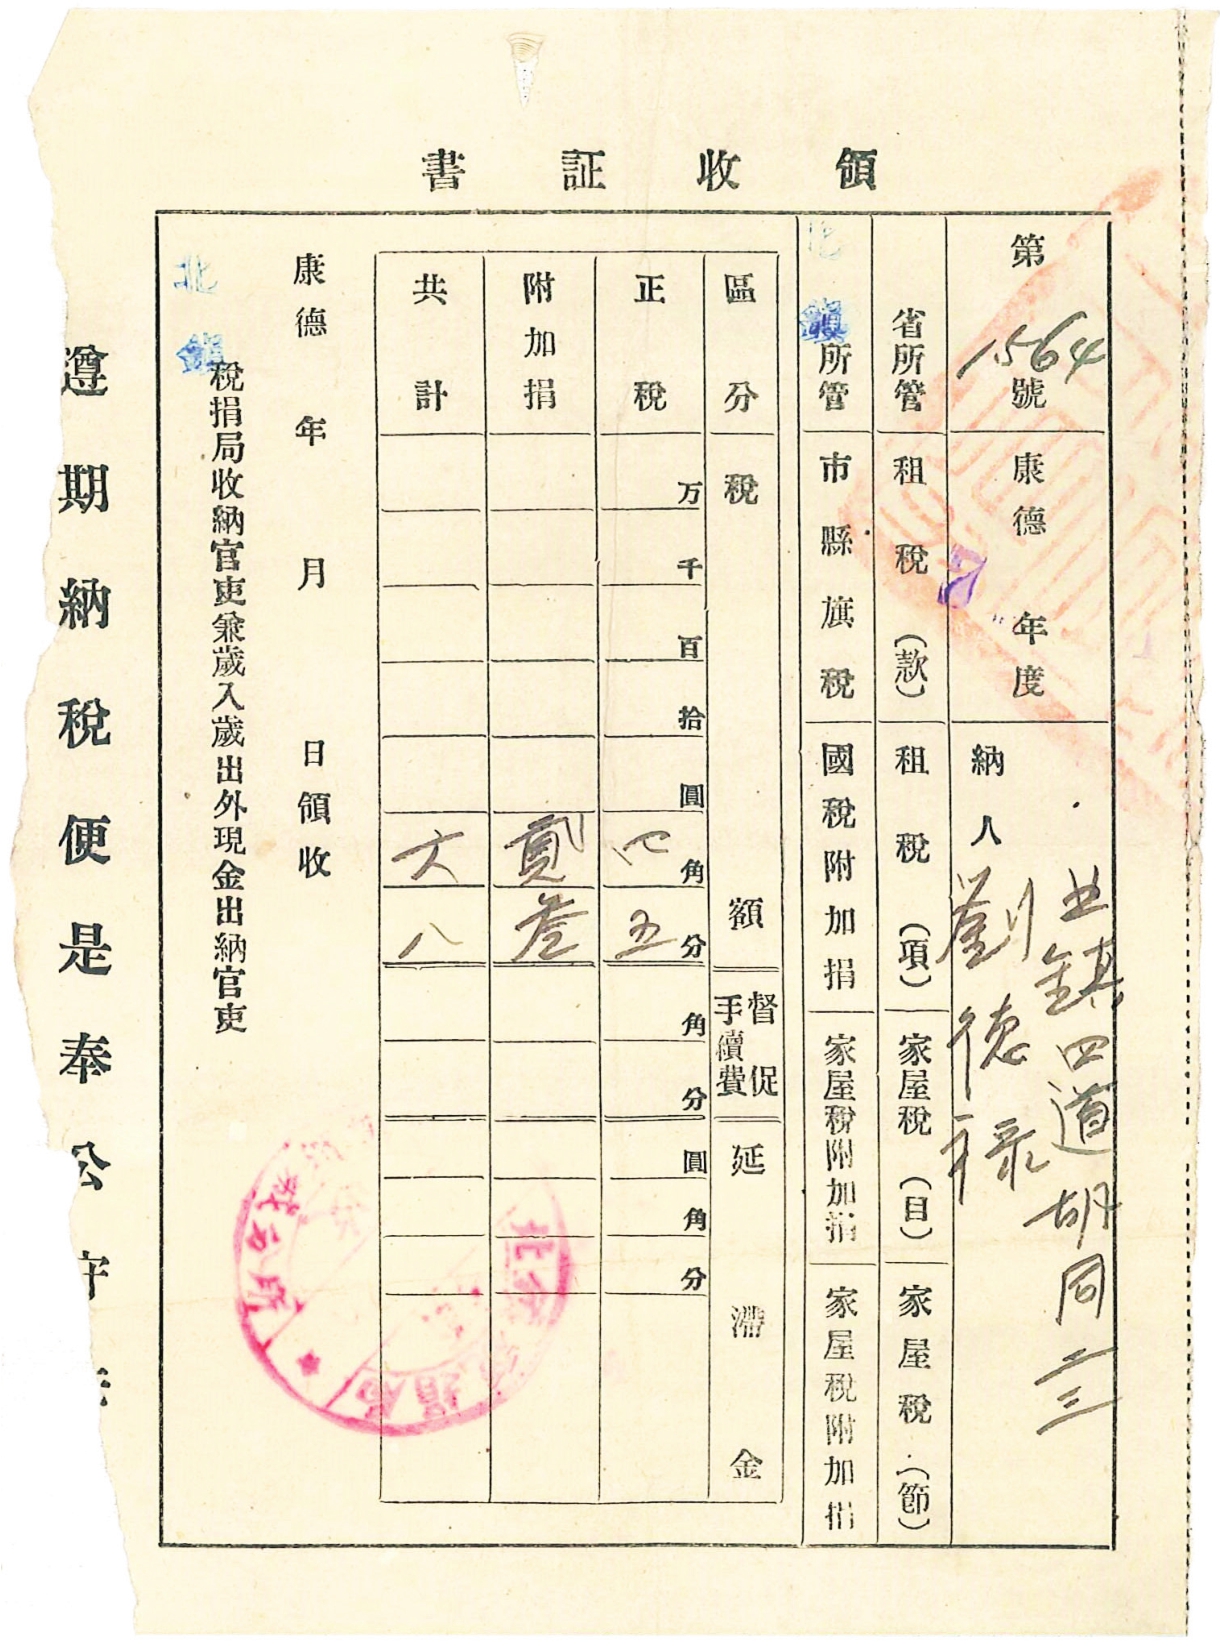 領收証書
第1564號
康德7年度
納人
北鎮四道胡同三三
劉德祿
省所管
租稅(款)
租稅(項)
家屋稅(目)
家屋稅(節)
北鎮所管
市縣旗稅
國稅附加捐
家屋稅附加捐
家屋稅附加捐
區分
稅額
督促手續費
延滯金
正稅
万千百拾圓角分
角分
圓角分
四五
附加捐
貳叁
共計
六八
康德 年 月 日領收
北鎮稅捐局收納官吏兼歲入歲出外現金出納官吏
遵期納稅便是奉公守法